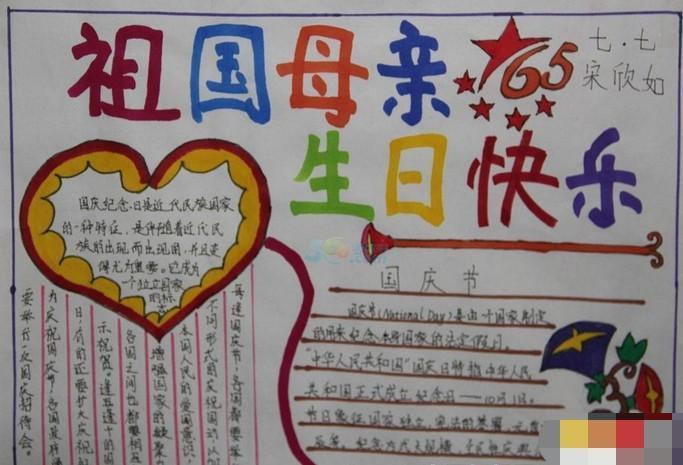 祖国母亲
65
七.七
宋欣如
生日快乐
国庆纪念日是近代民族国家
的一种特征,是伴随着近代民
族的出现而出现的,并且变
得尤为重要。它成为
一个独立国家
的标
志
每逢国庆节,各国都要举
不同形式的庆祝活动,以加
本国人民的爱国意识,
增强国家的凝聚力
各国之间也都要相互
示祝贺。逢五逢十的国
日,有的还要扩大庆祝
为庆祝国庆节,各国政府
要举行一次国庆招待会。
国庆节
国庆节(National Day)是由一个国家制定
的用来纪念本身国家的法定假日
"中华人民共和国"国庆日特指中华人民
共和国正式成立纪念日——10月1日。
节日象征国家独立、宪法的签署、
纪念方式大规模、